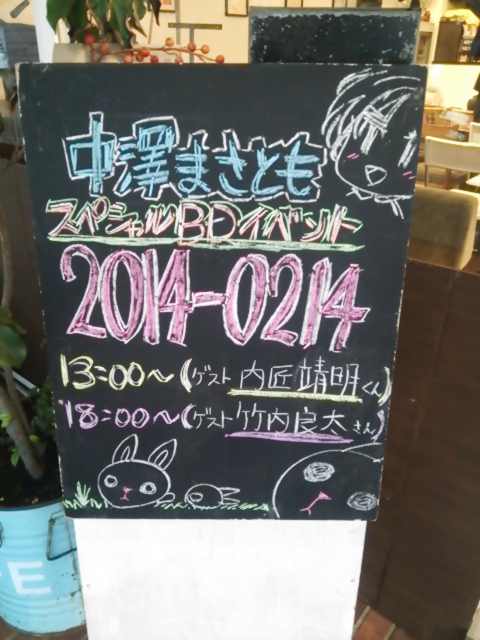 中澤まさとも
スペシャルBDイベント
2014-0214
13:00〜(ゲスト 内匠靖明くん)
18:00〜(ゲスト 竹内良太さん)
FE